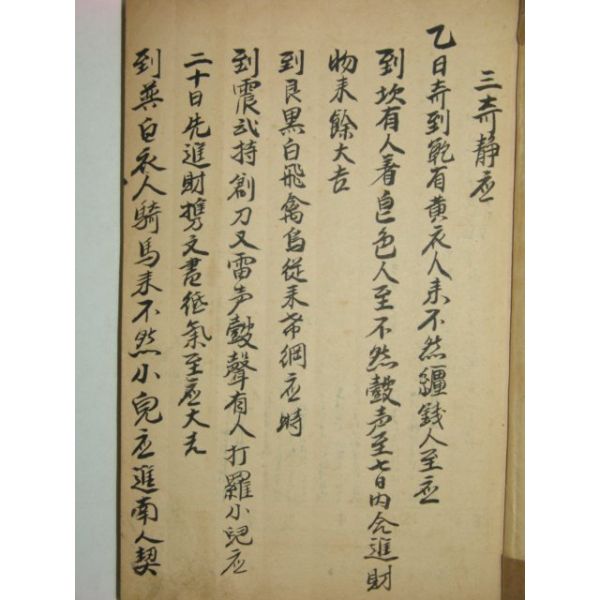 三奇静应
乙日奇到乾有黄衣人来不然繮銭人至应
到坎有人着皀色人至不然鼓声至七日内合進財
物来餘大吉
到艮黒白飛禽烏從来希網应時
到震武持創刀又雷声鼓聲有人打羅小兒应
二十日先進財携文書 氣至应大吉
到巽白衣人騎馬来不然小兒应進南人契